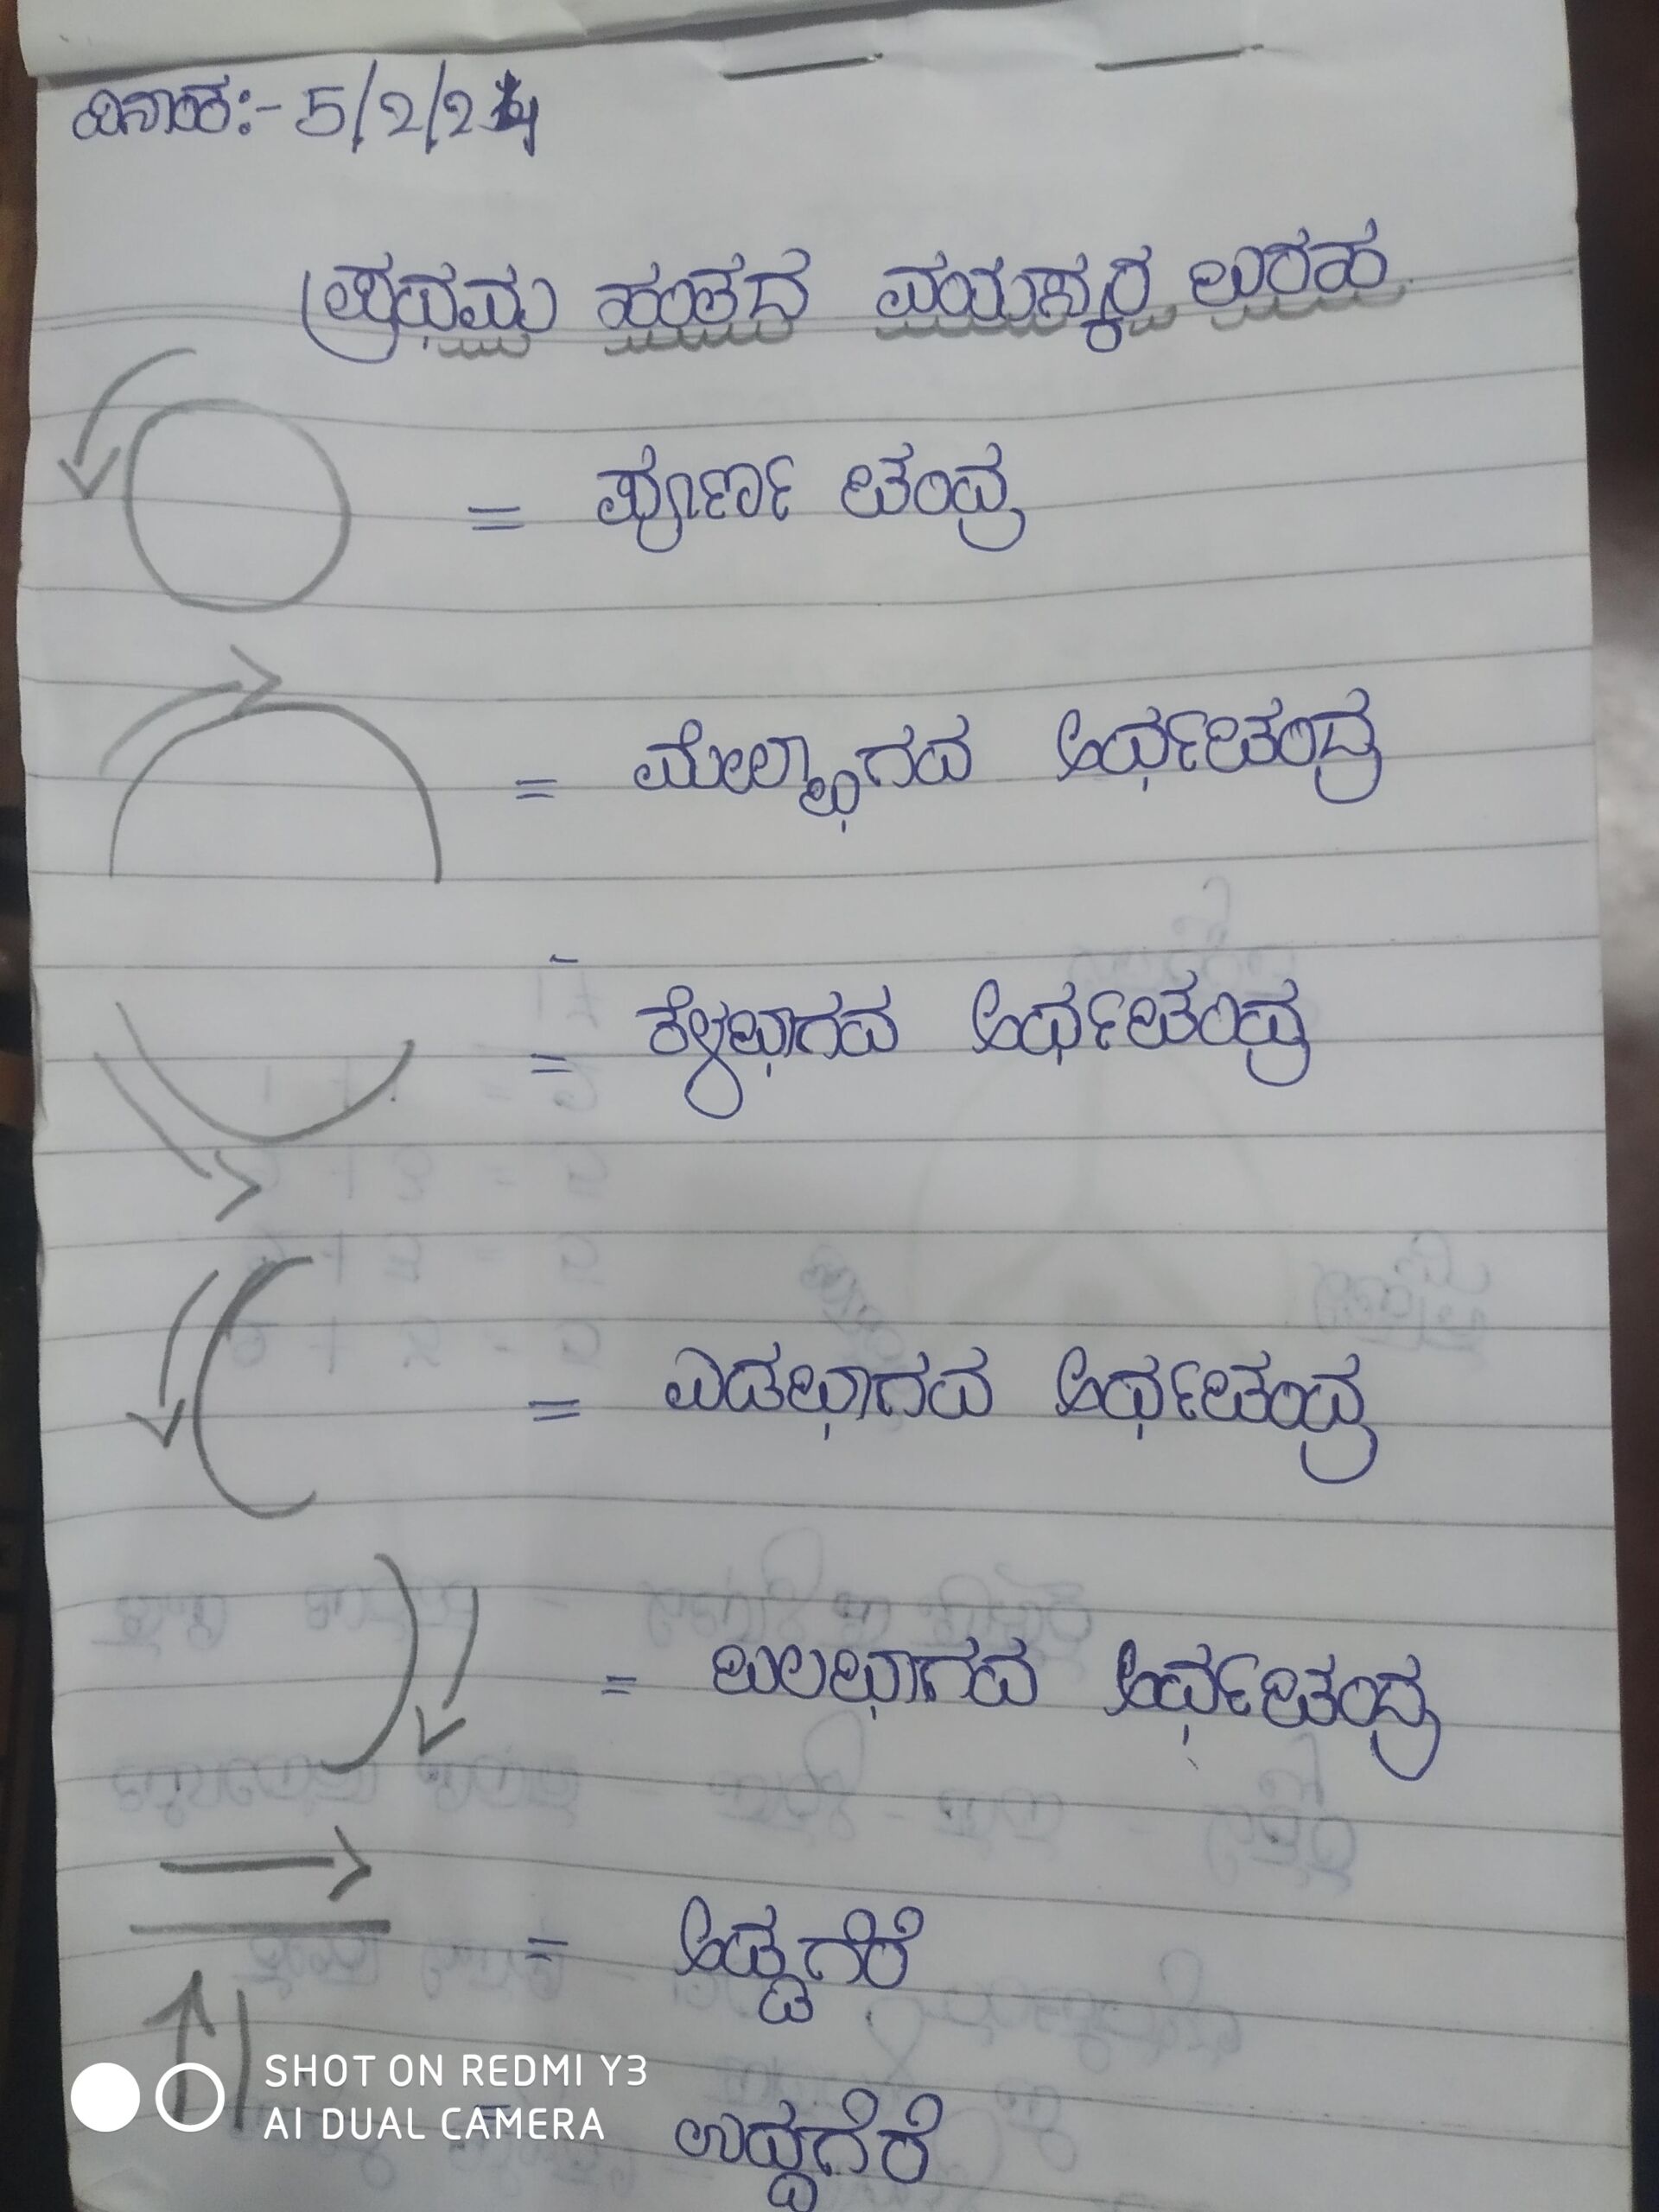 ದಿನಾಂಕ:- 5/2/24
ಪ್ರಥಮ ಹಂತದ ವಯಸ್ಕರ ಬರಹ
= ಪೂರ್ಣ ಚಂದ್ರ
= ಮೇಲ್ಭಾಗದ ಅರ್ಧಚಂದ್ರ
= ಕೆಳಭಾಗದ ಅರ್ಧಚಂದ್ರ
= ಎಡಭಾಗದ ಅರ್ಧಚಂದ್ರ
= ಬಲಭಾಗದ ಅರ್ಧಚಂದ್ರ
= ಅಡ್ಡಗೆರೆ
= ಉದ್ದಗೆರೆ
SHOT ON REDMI Y3
AI DUAL CAMERA